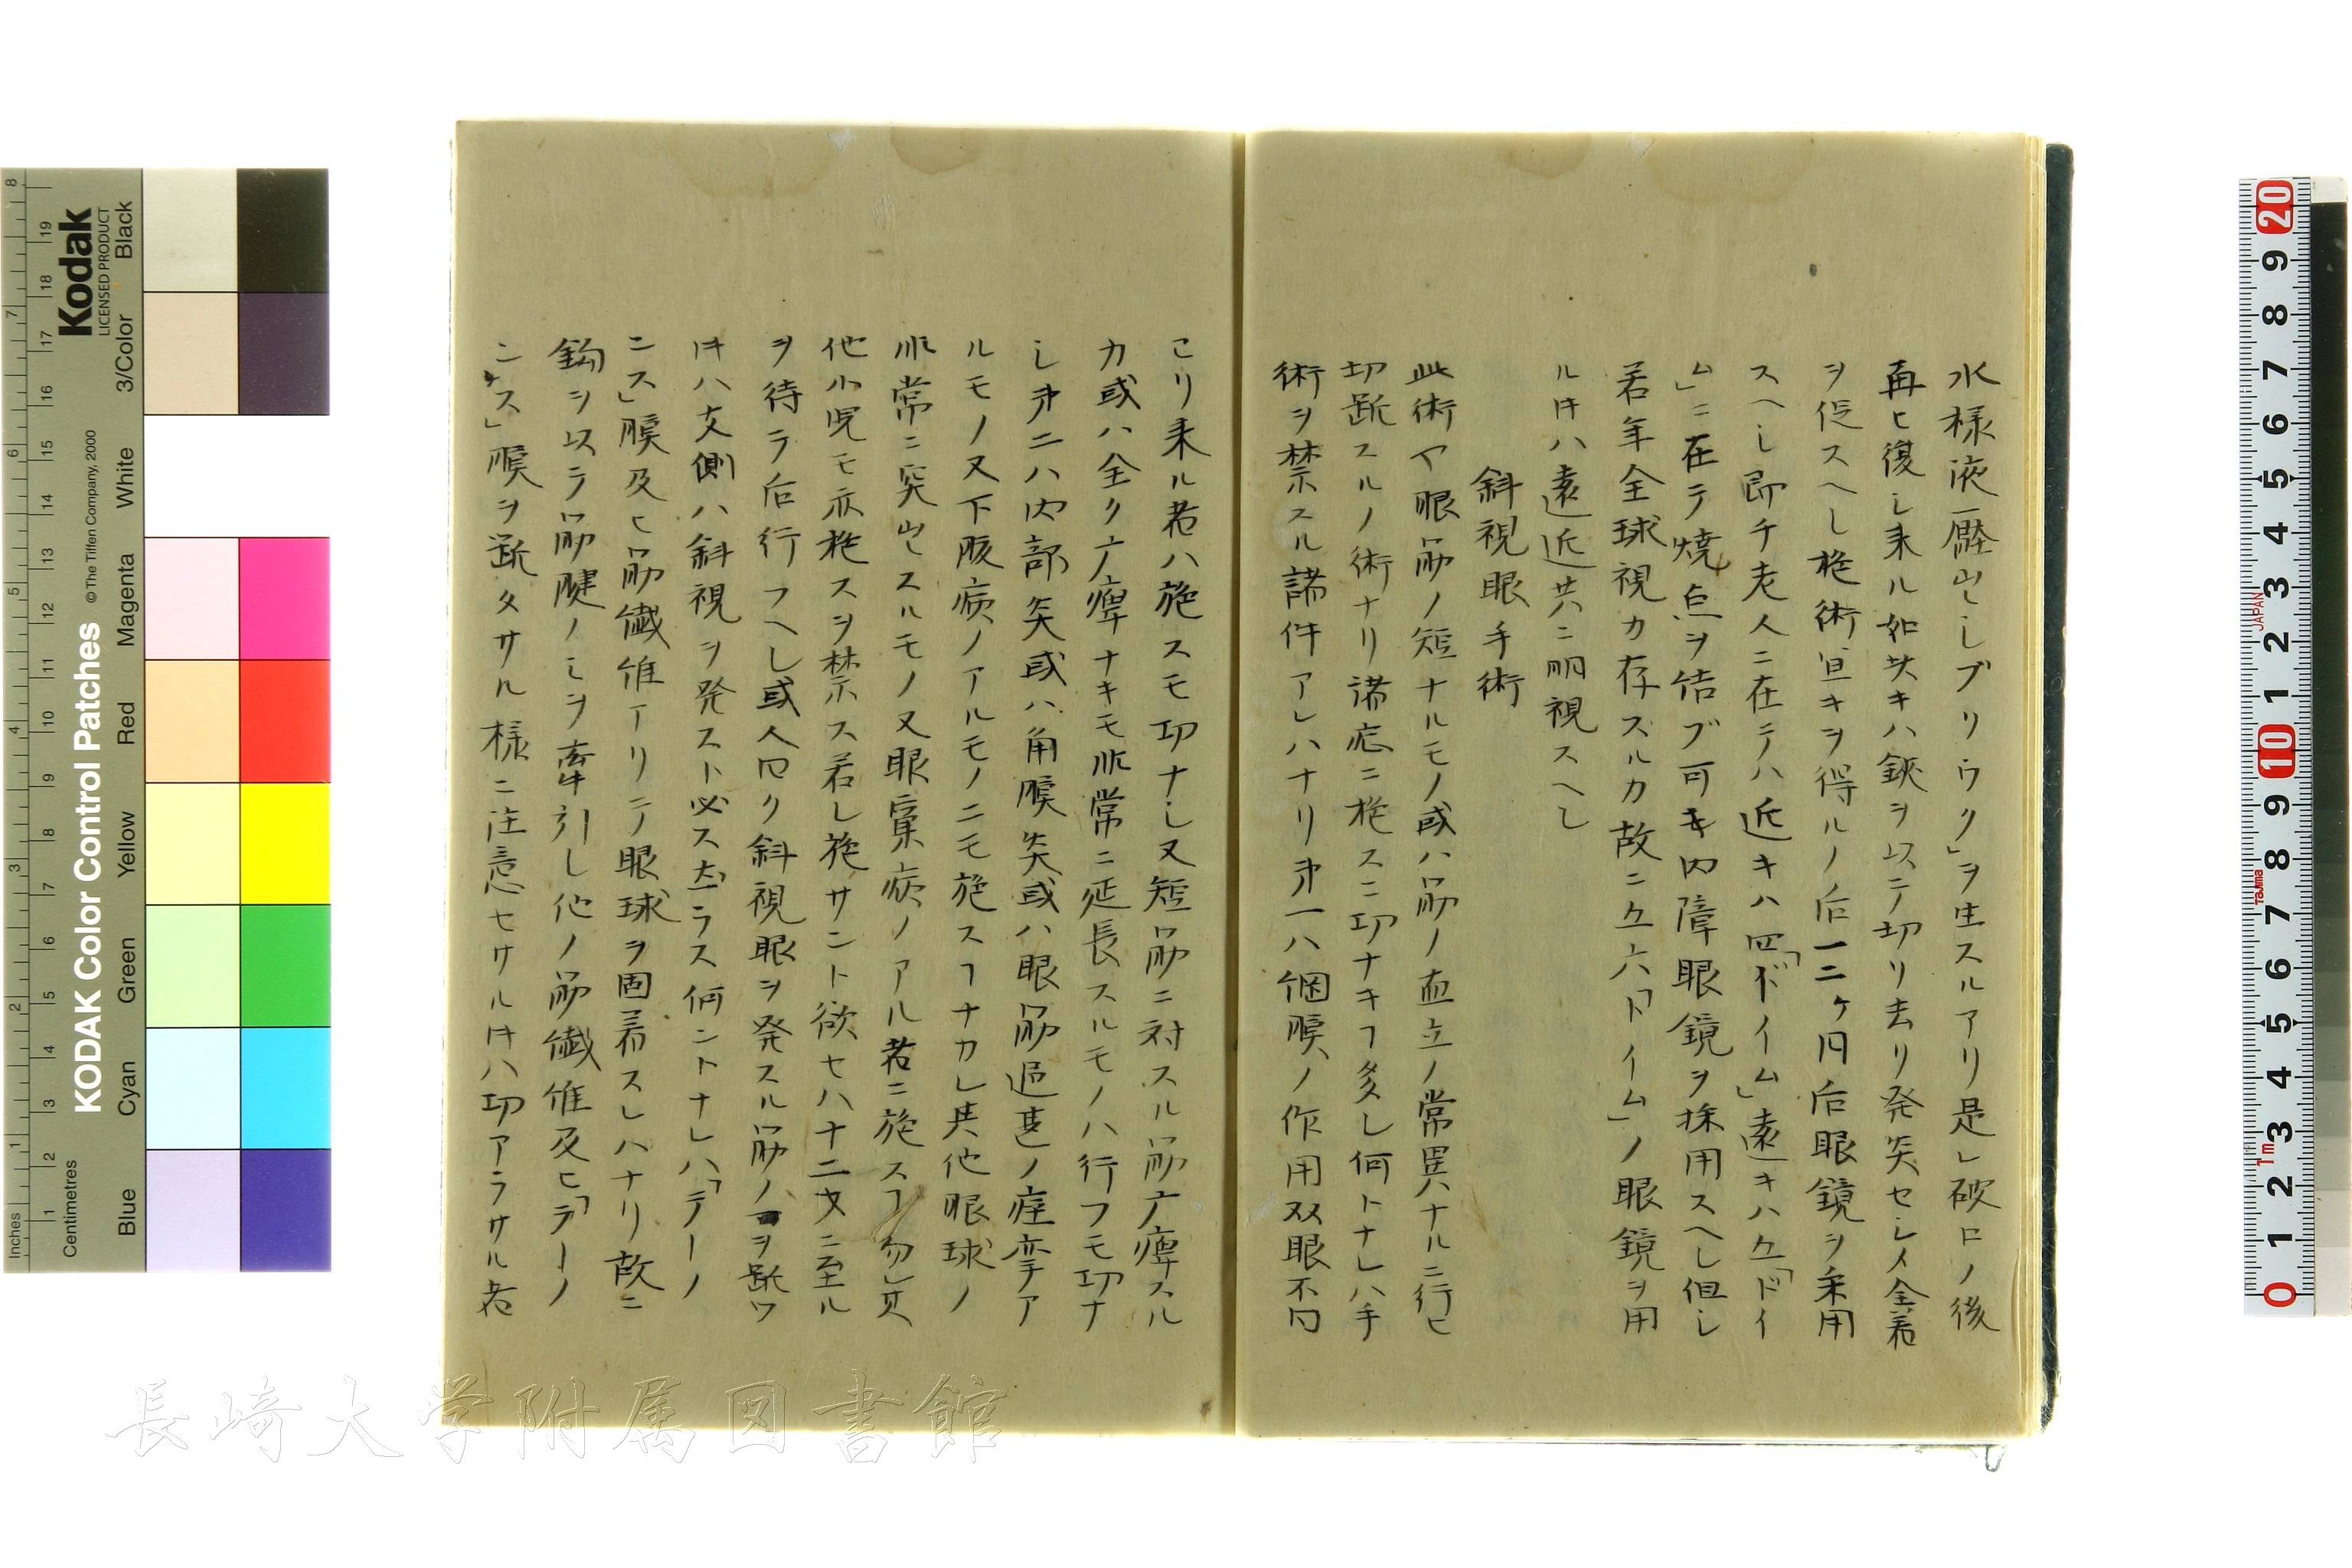 水様液壓出シブリウク」ヲ生スルアリ是レ破口ノ後
再ヒ復シ来ル如キハ鋏ヲ以テ切リ去リ発炎セシメ全着
ヲ促スヘシ施術宜キヲ得ルノ后一二ヶ月后眼鏡ヲ用
スヘシ即チ老人ニ在テハ近キハ四「ドイム」遠キハ五「ドイ
ム」ニ在テ焼点ヲ結ブ可キ内障眼鏡ヲ採用スヘシ但シ
若年全球視力存スルカ故ニ五六「ドイム」ノ眼鏡ヲ用
ルキハ遠近共ニ明視スヘシ
斜視眼手術
此術ヤ眼筋ノ短ナルモノ或ハ筋ノ直立ノ常異ナルニ行ヒ
切断スルノ術ナリ諸症ニ施スニ功ナキヿ多シ何トナレハ手
術ヲ禁スル諸件アレハナリ第一ハ網膜ノ作用双眼不同
ヨリ来ル者ハ施スモ功ナシ又短筋ニ対スル筋广痺スル
カ或ハ全ク广痺ナキモ非常ニ延長スルモノハ行フモ功ナ
シ第二ハ内部炎或ハ角膜炎或ハ眼筋過甚ノ痙攣ア
ルモノ又下腹病ノアルモノニモ施スヿナカレ其他眼球ノ
非常ニ突出スルモノ又眼窠病ノアル者ニ施スヿ勿レ其
他小児モ亦施スヲ禁ス若シ施サント欲セハ十二才ニ至ル
ヲ待テ后行フヘシ或人曰ク斜視眼ヲ発スル筋ノヲ断ワ
キハ反側ハ斜視ヲ発スト必ス然ラス何ントナレハ「テーノ
ニス」膜及ヒ筋繊維アリテ眼球ヲ固着スレハナリ故ニ
鈎ヲ以テ筋腱ノミヲ牽引シ他ノ筋繊維及ヒ「テーノ
ニス」膜ヲ断タサル様ニ注意セサルキハ功アラサル者
KODAK Color Control Patches
© The Tiffen Company, 2000
Kodak
LICENSED PRODUCT
Inches
Centimetres
Blue Cyan Green Yellow Red Magenta White 3/Color Black
JAPAN
Tajima
長崎大学附属図書館